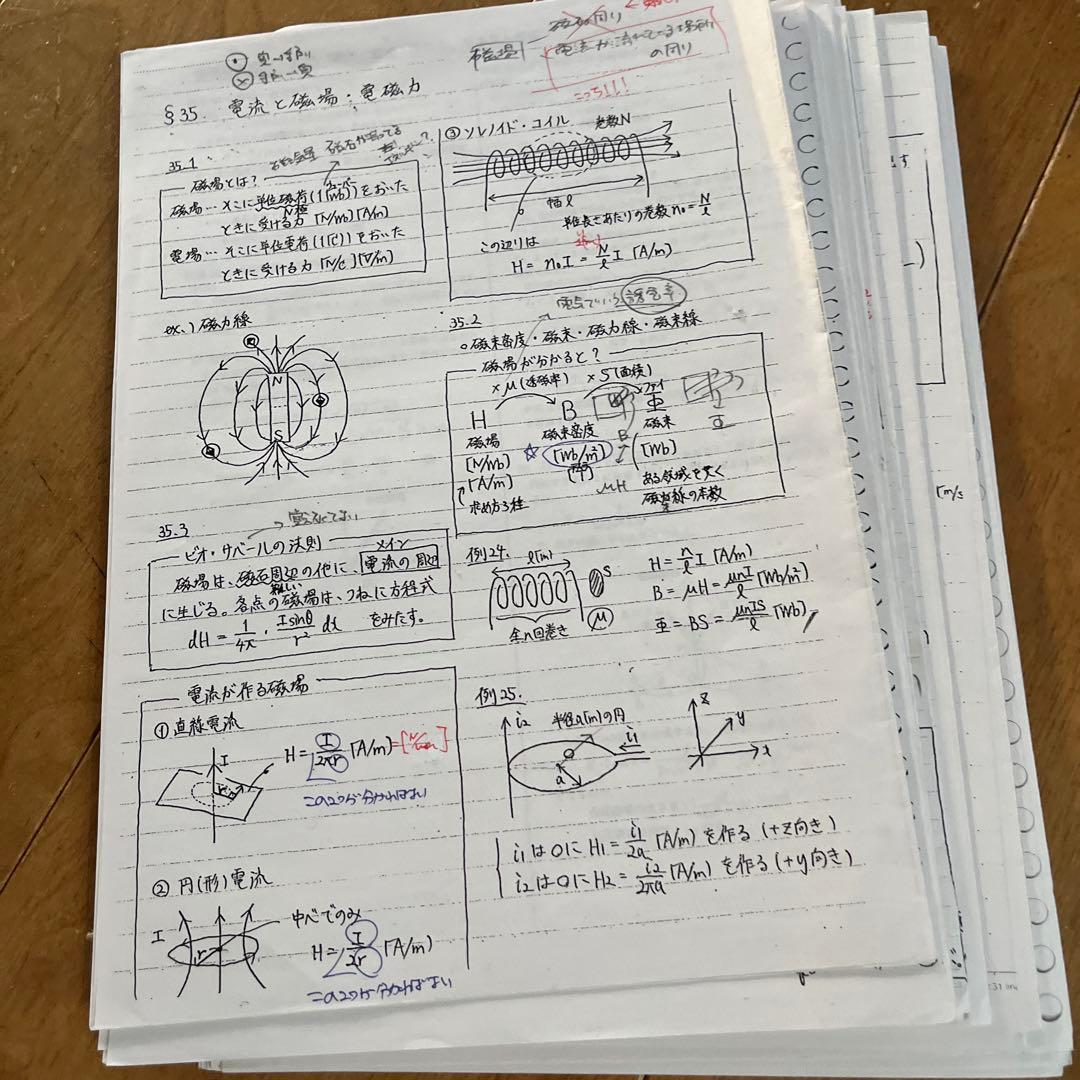 磁場
電流が流れている場所
の周り
こっち!!!
§35. 電流と磁場:電磁力
35.1
磁場とは?
磁場…そこに単位磁荷(1[Wb])をおいた
N極
ときに受ける力[N/Wb][A/m]
電場…そこに単位電荷(1[C])をおいた
ときに受ける力[N/C][V/m]
ex.)磁力線
N
S
③ソレノイド・コイル 巻数N
幅l
単位長さあたりの巻数n₀=N/l
この辺りは
H = n₀I = N/l I [A/m]
35.2
電気でいう誘電率
○磁束密度・磁束・磁力線・磁束線
磁場が分かると?
×μ(透磁率) ×S(面積)
ファイ
H B Φ
磁場 磁束密度 磁束
[N/Wb] ☆[Wb/m²] [Wb]
[A/m]
求め方3種
μH
B
Φ
ある領域を貫く
の本数
35.3
ビオ・サバールの法則
メイン
磁場は、磁石周辺の他に、電流の周辺
に生じる。各点の磁場は、つねに方程式
dH = 1/4π · I sinθ/r² dl をみたす。
例24.
l[m]
S
μ
全n回巻き
H = n/l I [A/m]
B = μH = μnI/l [Wb/m²]
Φ = BS = μnIS/l [Wb]
電流が作る磁場
①直線電流
I
r
H = I/2πr [A/m]
この2つが分かればよい
②円(形)電流
I
r
中心でのみ
H = I/2r [A/m]
この2つが分かればよい
例25.
i₂
半径a[m]の円
i₁
O
a
z
y
x
i₁はOにH₁ = i₁/2a [A/m]を作る(+z向き)
i₂はOにH₂ = i₂/2πa [A/m]を作る(+y向き)
[m/s